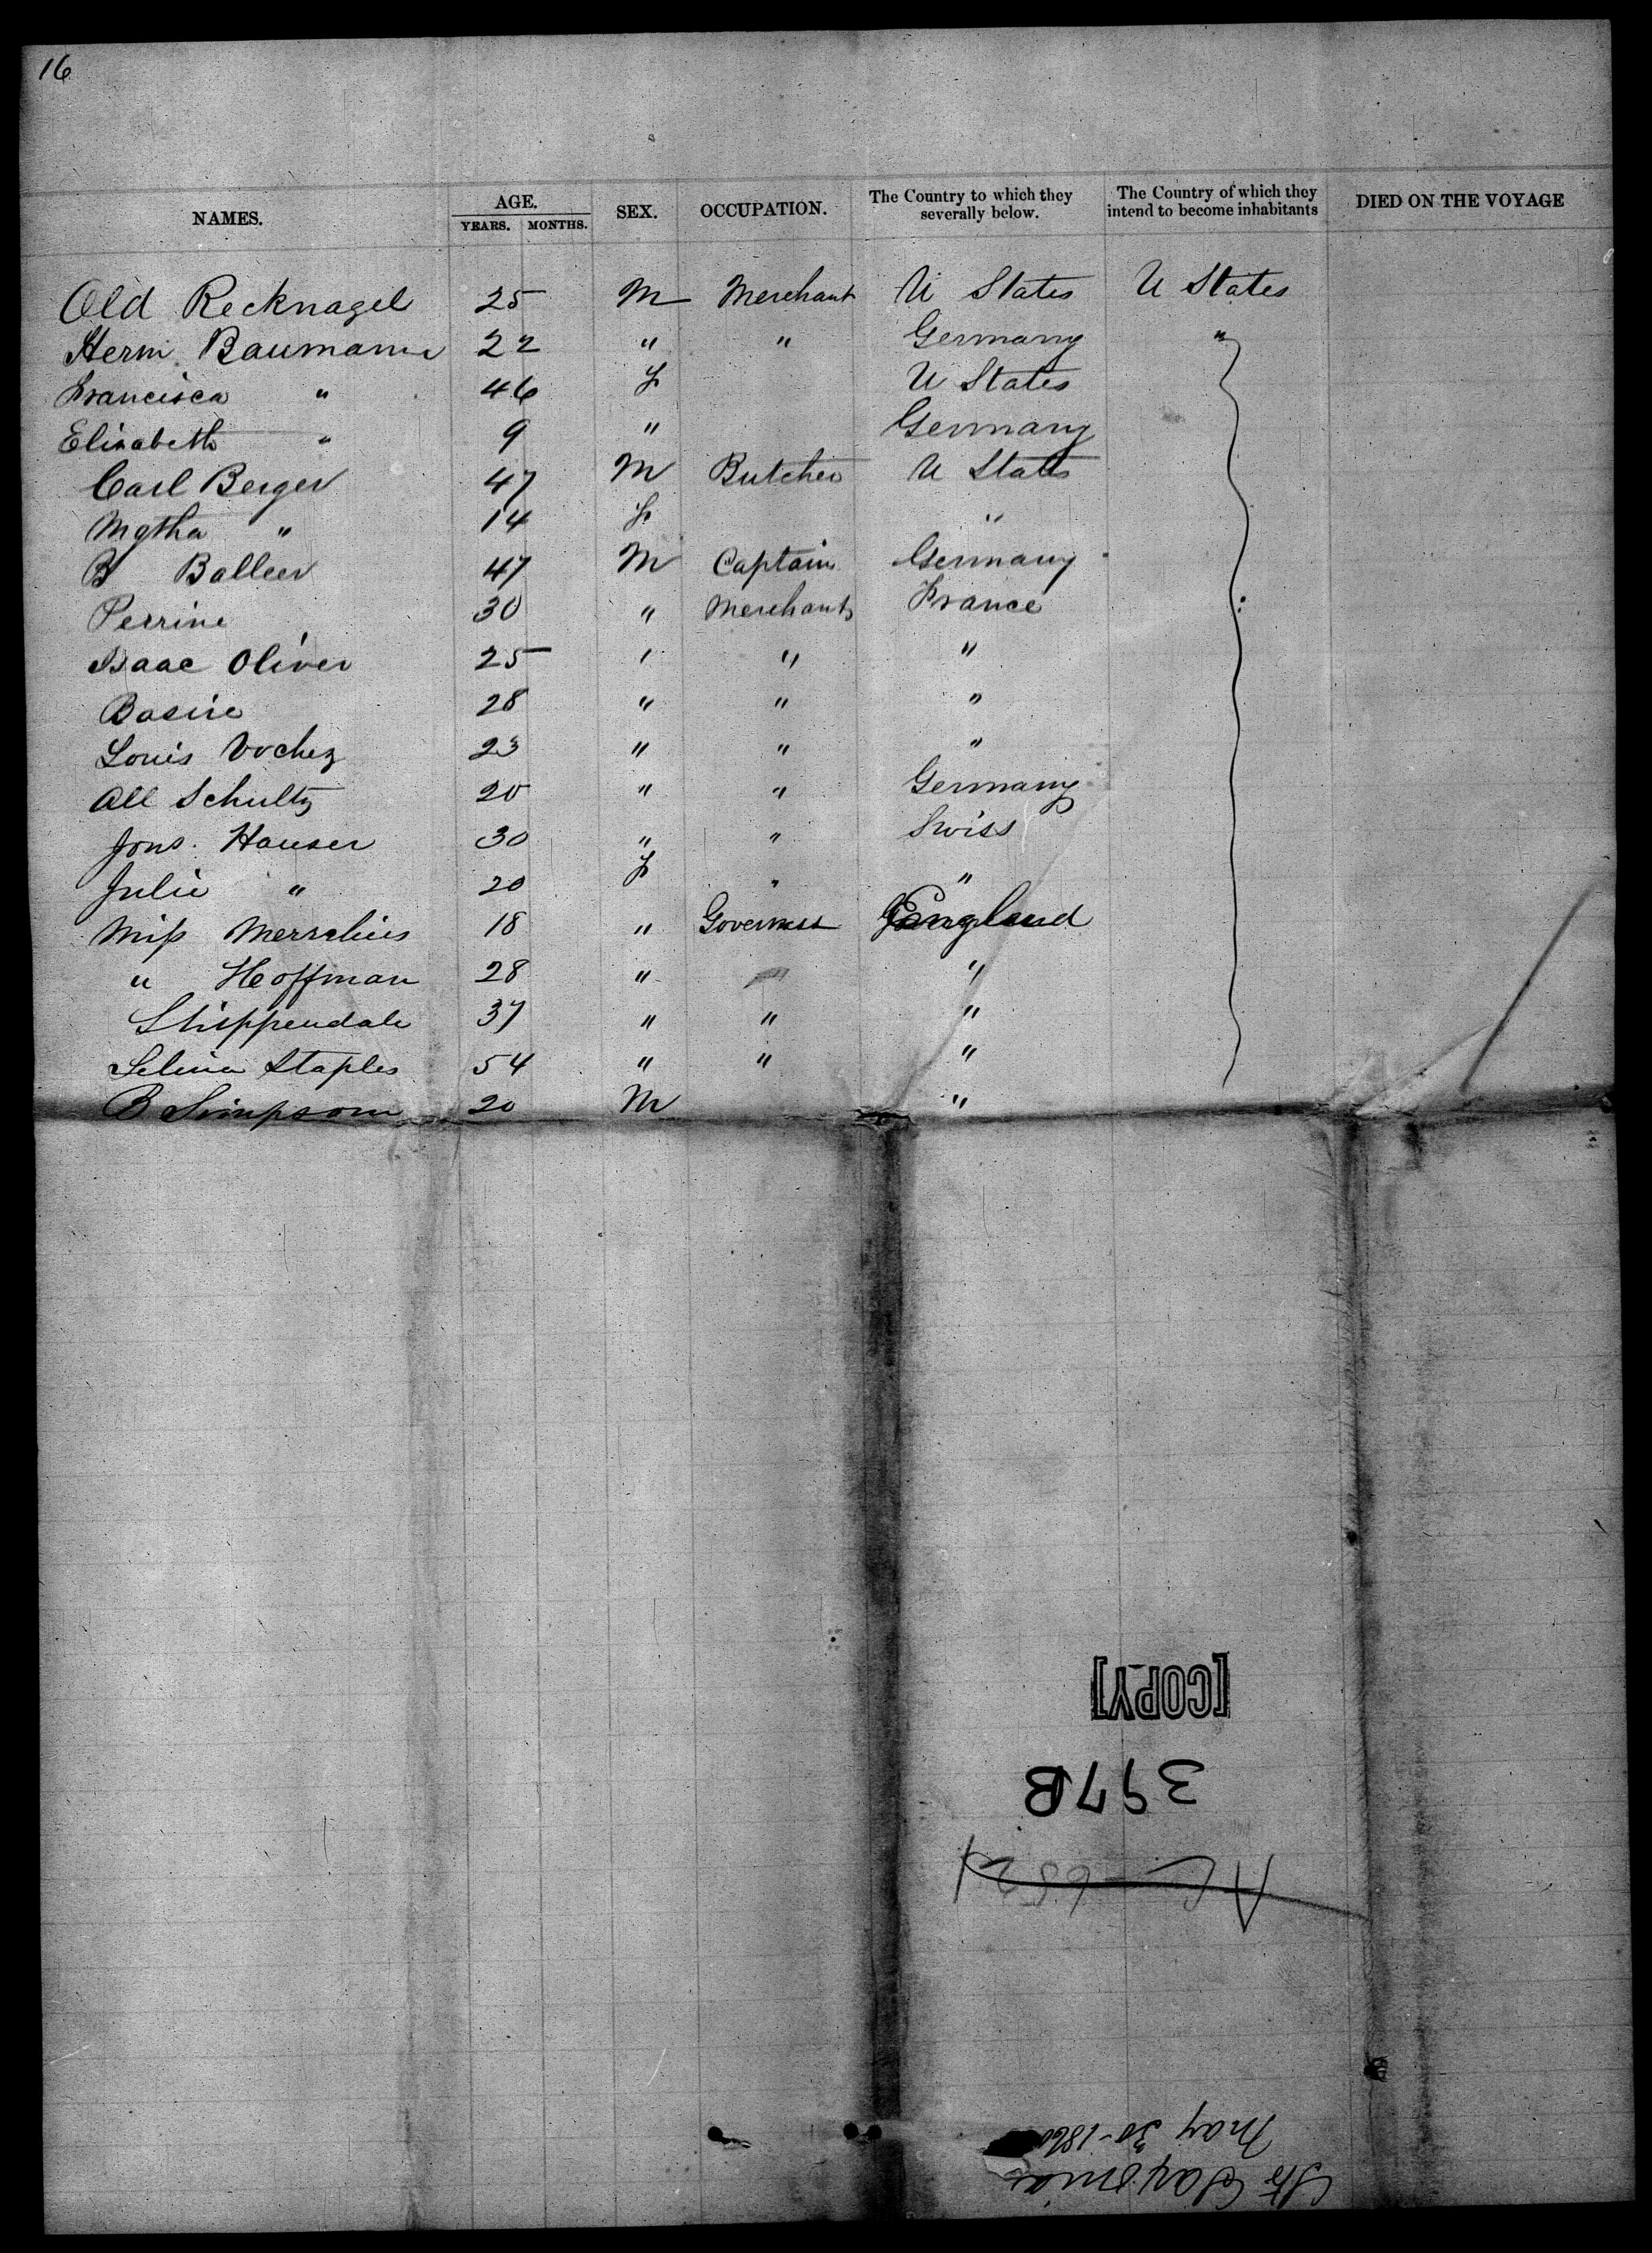 16
NAMES. AGE. YEARS. MONTHS. SEX. OCCUPATION. The Country to which they severally below. The Country of which they intend to become inhabitants DIED ON THE VOYAGE
Old Recknagel 25 M Merchant U States U States
Herm. Baumann 22 " " Germany "
Francisca " 46 F U States
Elisabeth " 9 " Germany
Carl Berger 47 M Butcher U States
Mgtha " 14 F "
B Balleer 47 M Captain Germany
Perrine 30 " Merchant France
Isaac Oliver 25 " " "
Basire 28 " " "
Louis Vochez 23 " " "
All Schultz 20 " " Germany
Jons. Hauser 30 " " Swiss
Julie " 20 F " "
Miss Merschius 18 " Governess England
" Hoffman 28 " " "
Shippendale 37 " " "
Selina Staples 54 " " "
B Simpson 20 M "
[COPY]
397B
Str Saxonia
May 30-1860